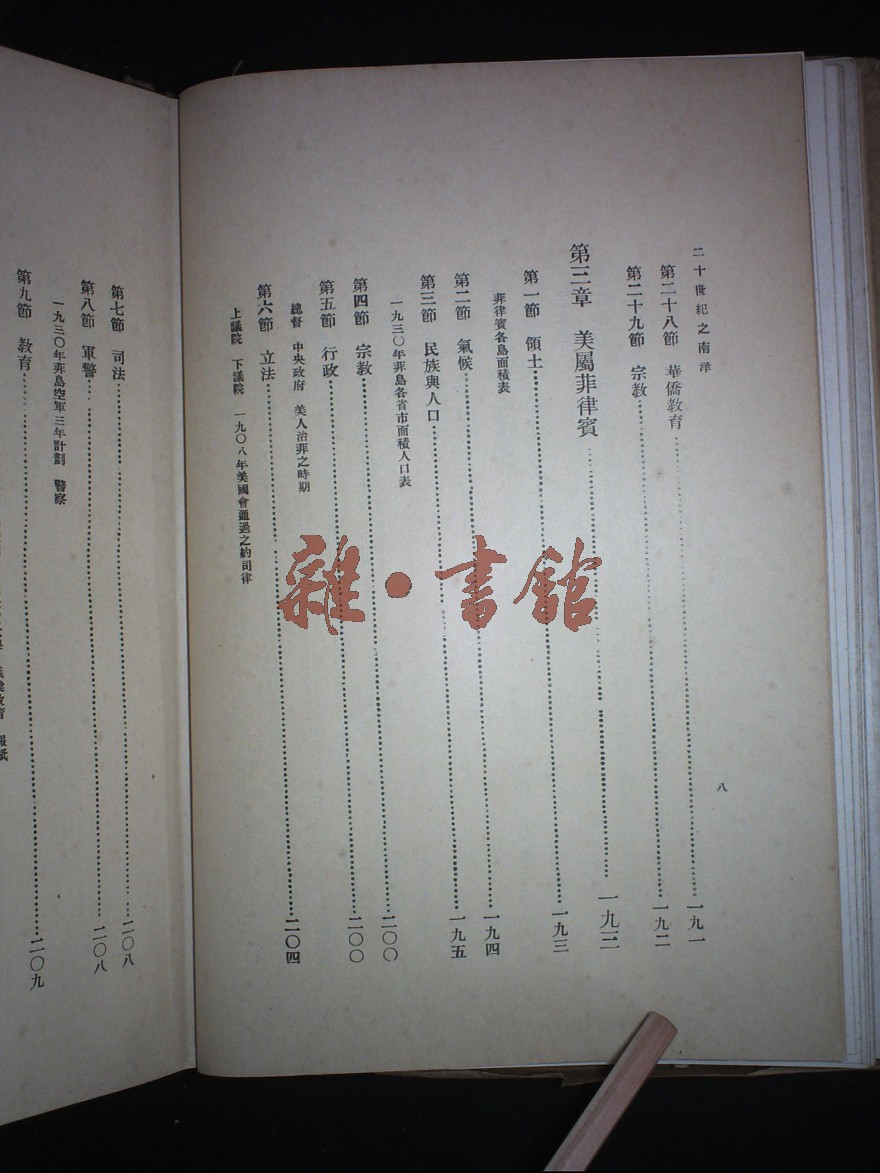 二十世紀之南洋
八
第二十八節 華僑教育……一九一
第二十九節 宗教……一九二
第三章 美屬菲律賓……一九三
第一節 領土……一九三
菲律賓各島面積表
第二節 氣候……一九四
第三節 民族與人口……一九五
一九三〇年菲島各省市面積人口表
第四節 宗教……二〇〇
第五節 行政……二〇〇
總督 中央政府 美人治菲之時期
第六節 立法……二〇四
上議院 下議院 一九〇八年美國會通過之約司律
第七節 司法……二〇八
第八節 軍警……二〇八
一九三〇年菲島空軍三年計劃 警察
第九節 教育……二〇九
教育 報紙
雜·書館